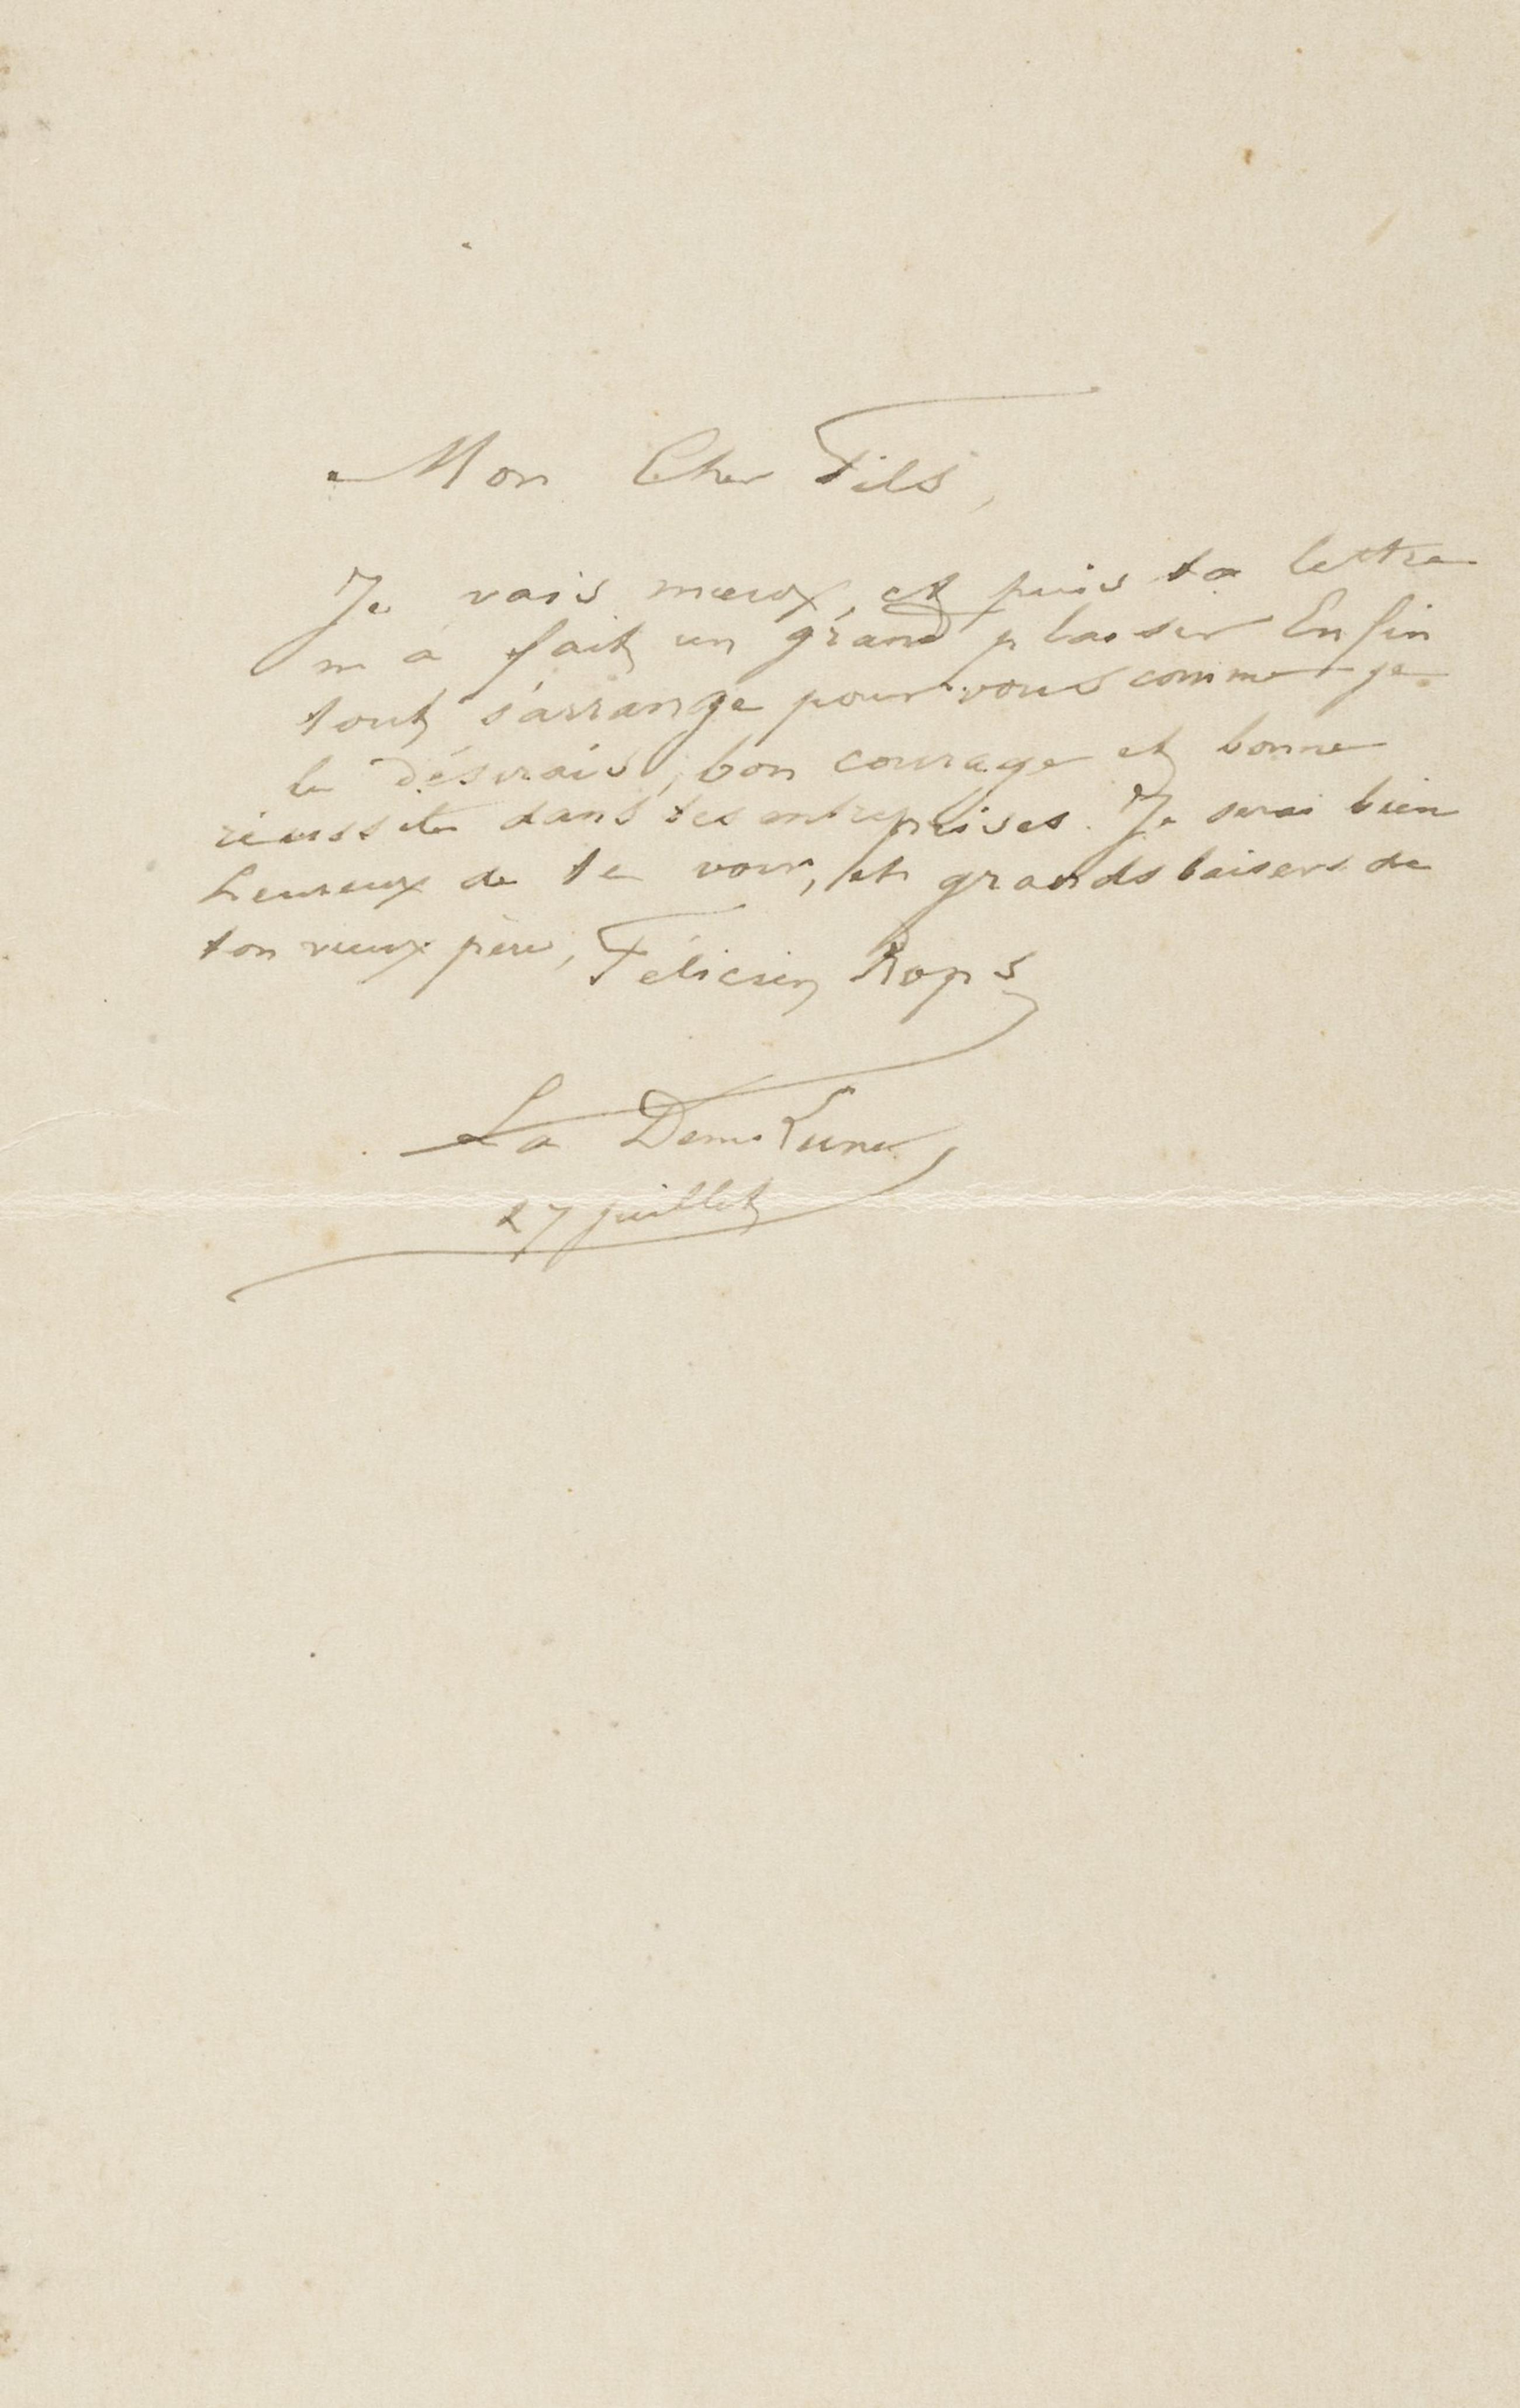 Mon Cher Fils,
Je vais mieux, et puis ta lettre
m'a fait un grand plaisir Enfin
tout s'arrange pour vous comme je
le désirais, bon courage et bonne
réussite dans tes entreprises. Je serai bien
heureux de te voir, et grands baisers de
ton vieux père, Félicien Rops
La Demi Lune
27 juillet